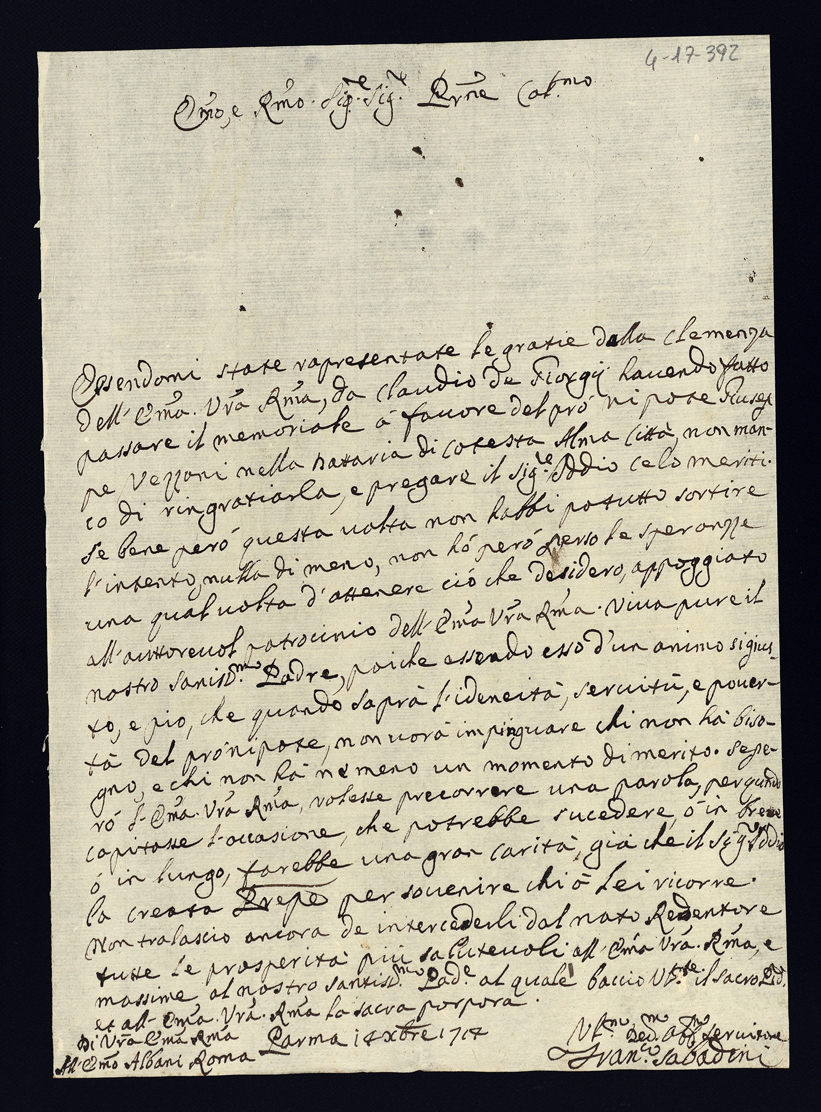 4-17-392
Emo, e Rmo. Sig.re Sig.re Prne Col.mo
Essendomi state rapresentate le gratie dalla clemenza
dell'Ema. Vra Rma, da Claudio de Giorgij havendo fatto
passare il memoriale á favore del pró nipote Giusep
pe Vezzani nella Dataria di cotesta Alma Città, non man-
co di ringratiarla, e pregare il Sig.re Iddio celo meriti.
Se bene peró questa volta non habbi potutto sortire
l'intento, nulla di meno, non hó peró perso le speranze
una qual volta d'ottenere ció che desidero, appoggiato
all'auttorevol patrocinio dell'Ema Vra Rma. Viva pure il
nostro Santiss.mo Padre, poiche essendo esso d'un animo si gius-
to, e pio, che quando saprà l'ideneità, servitù, e pover-
tà del prónipote, non vorà impinguare chi non hà biso-
gno, e chi non hà ne meno un momento di merito. Se pe-
ró l'Ema. Vra Rma, volesse precorrere una parola, per quando
capitasse l'occasione, che potrebbe sucedere, ó in breve
ó in lungo, farebbe una gran carità, già che il Sig.re Iddio
la creata Prepe per sovenire chi á Lei ricorre.
Non tralascio ancora de intercederli dal nato Redentore
tutte le prosperità piú salutevoli all'Ema Vra. Rma, e
massime al nostro Santiss.mo Pad.e al quale baccio U.te il sacro Pied.
et all'Ema. Vra. Rma la sacra porpora.
Di Vra Ema Rma Parma 14 Xbre 1714 U.mo Ded.mo Obb.mo Servitore
All'Emo Albani Roma Fran.co Sabadini